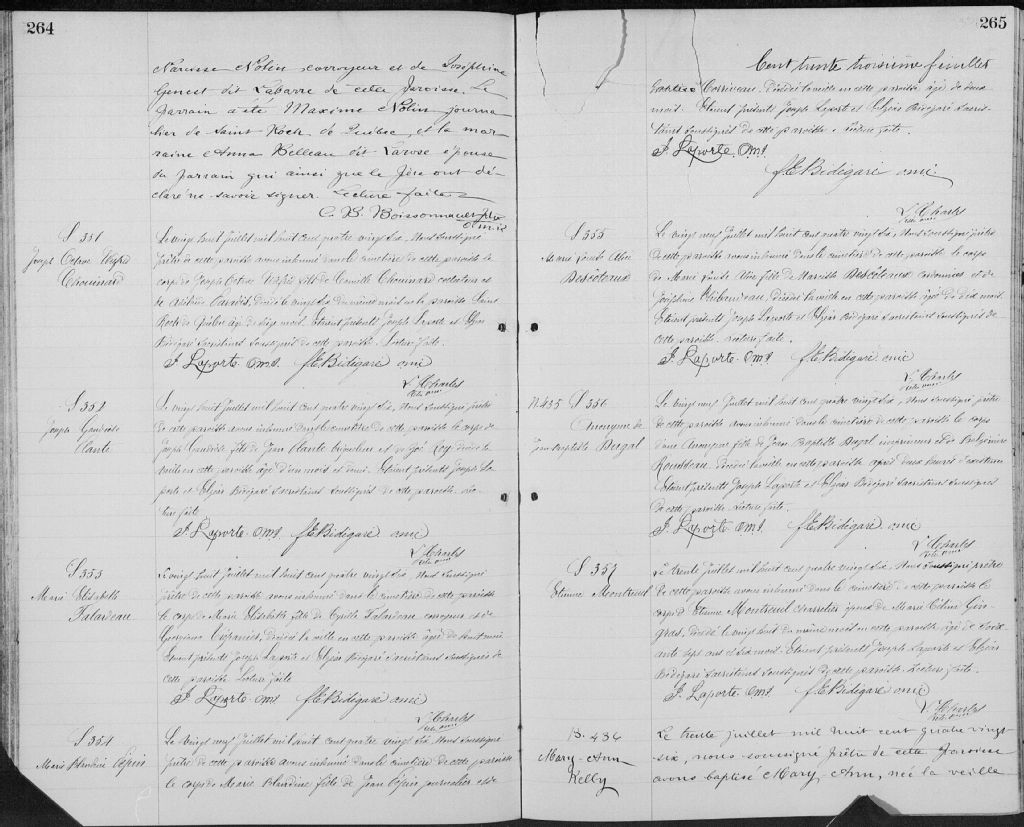 264
Narcisse Nolin corroyeur et de Joséphine
Genest dit Labarre de cette Paroisse. Le
Parrain a été Maxime Nolin journa-
lier de Saint Roch de Québec, et la mar-
raine Anna Belleau dit Larose épouse
du parrain qui ainsi que le père ont dé-
claré ne savoir signer. Lecture faite
C. B. Boissonnault
S 351
Joseph Octave
Chouinard
Le vingt huit Juillet mil huit cent quatre vingt six, Nous soussigné
prêtre de cette paroisse avons inhumé dans le cimetière de cette paroisse le
corps de Joseph Octave fils de Camille Chouinard
décédé le vingt six du même mois en la paroisse Saint
Roch de Québec âgé de mois. Etaient présents Joseph Laporte et Elzéar
Bédégaré sacristains soussignés de cette paroisse. Lecture faite.
J. Laporte O.m.I. f. E. Bédégaré omi
L. Charles
S 352
Joseph
Plante
Le vingt huit Juillet mil huit cent quatre vingt six, Nous soussigné prêtre
de cette paroisse avons inhumé dans le cimetière de cette paroisse le corps de
Joseph fils de Jean Plante et de Roy décédé la
veille en cette paroisse âgé d'un mois et demi. Etaient présents Joseph La-
porte et Elzéar Bédégaré sacristains soussignés de cette paroisse. Lec-
ture faite
J. Laporte O.m.I. f. E. Bédégaré omi
L. Charles
S 353
Marie Elisabeth
Falardeau
Le vingt huit Juillet mil huit cent quatre vingt six, Nous soussigné
prêtre de cette paroisse avons inhumé dans le cimetière de cette paroisse
le corps de Marie Elisabeth fille de Cyrille Falardeau et de
décédée la veille en cette paroisse âgée de
Etaient présents Joseph Laporte et Elzéar Bédégaré sacristains soussignés de
cette paroisse. Lecture faite
J. Laporte O.m.I. f. E. Bédégaré omi
L. Charles
S 354
Marie Blandine Pépin
Le vingt neuf Juillet mil huit cent quatre vingt six, Nous soussigné
prêtre de cette paroisse avons inhumé dans le cimetière de cette paroisse
le corps de Marie Blandine fille de Jean Pépin journalier et de
265
Cent trente troisième feuillet
Corriveau. Décédée la veille en cette paroisse âgée de deux
mois. Etaient présents Joseph Laporte et Elzéar Bédégaré sacris-
tains soussignés de cette paroisse. Lecture faite.
J. Laporte O.m.I.
f. E. Bédégaré omi
L. Charles
S 355
Marie Louise Alice
Descoteaux
Le vingt neuf Juillet mil huit cent quatre vingt six, Nous soussigné prêtre
de cette paroisse avons inhumé dans le cimetière de cette paroisse le corps
de Marie Louise Alice fille de Narcisse Descoteaux et de
Joséphine Thibaudeau, décédée la veille en cette paroisse âgée de dix mois.
Etaient présents Joseph Laporte et Elzéar Bédégaré sacristains soussignés de
cette paroisse. Lecture faite.
J. Laporte O.m.I. f. E. Bédégaré omi
L. Charles
N. 435 S 356
Anonyme de
Jean Baptiste Dugal
Le vingt neuf Juillet mil huit cent quatre vingt six, Nous soussigné prêtre
de cette paroisse avons inhumé dans le cimetière de cette paroisse le corps
d'une Anonyme fille de Jean Baptiste Dugal et de
Rousseau. Décédée la veille en cette paroisse après deux heures d'existence
Etaient présents Joseph Laporte et Elzéar Bédégaré sacristains soussignés
de cette paroisse. Lecture faite.
J. Laporte O.m.I. f. E. Bédégaré omi
L. Charles
S 357
Etienne Montreuil
Le trente Juillet mil huit cent quatre vingt six, Nous soussigné prêtre
de cette paroisse avons inhumé dans le cimetière de cette paroisse le
corps d'Etienne Montreuil époux de Marie Céline Gin-
gras, décédé le vingt huit du même mois en cette paroisse âgé de soix-
ante sept ans et six mois. Etaient présents Joseph Laporte et Elzéar
Bédégaré sacristains soussignés de cette paroisse. Lecture faite.
J. Laporte O.m.I. f. E. Bédégaré omi
L. Charles
B. 436
Mary-Ann
Kelly
Le trente juillet mil huit cent quatre vingt
six, nous soussigné Prêtre de cette Paroisse
avons baptisé Mary, Ann, née la veille